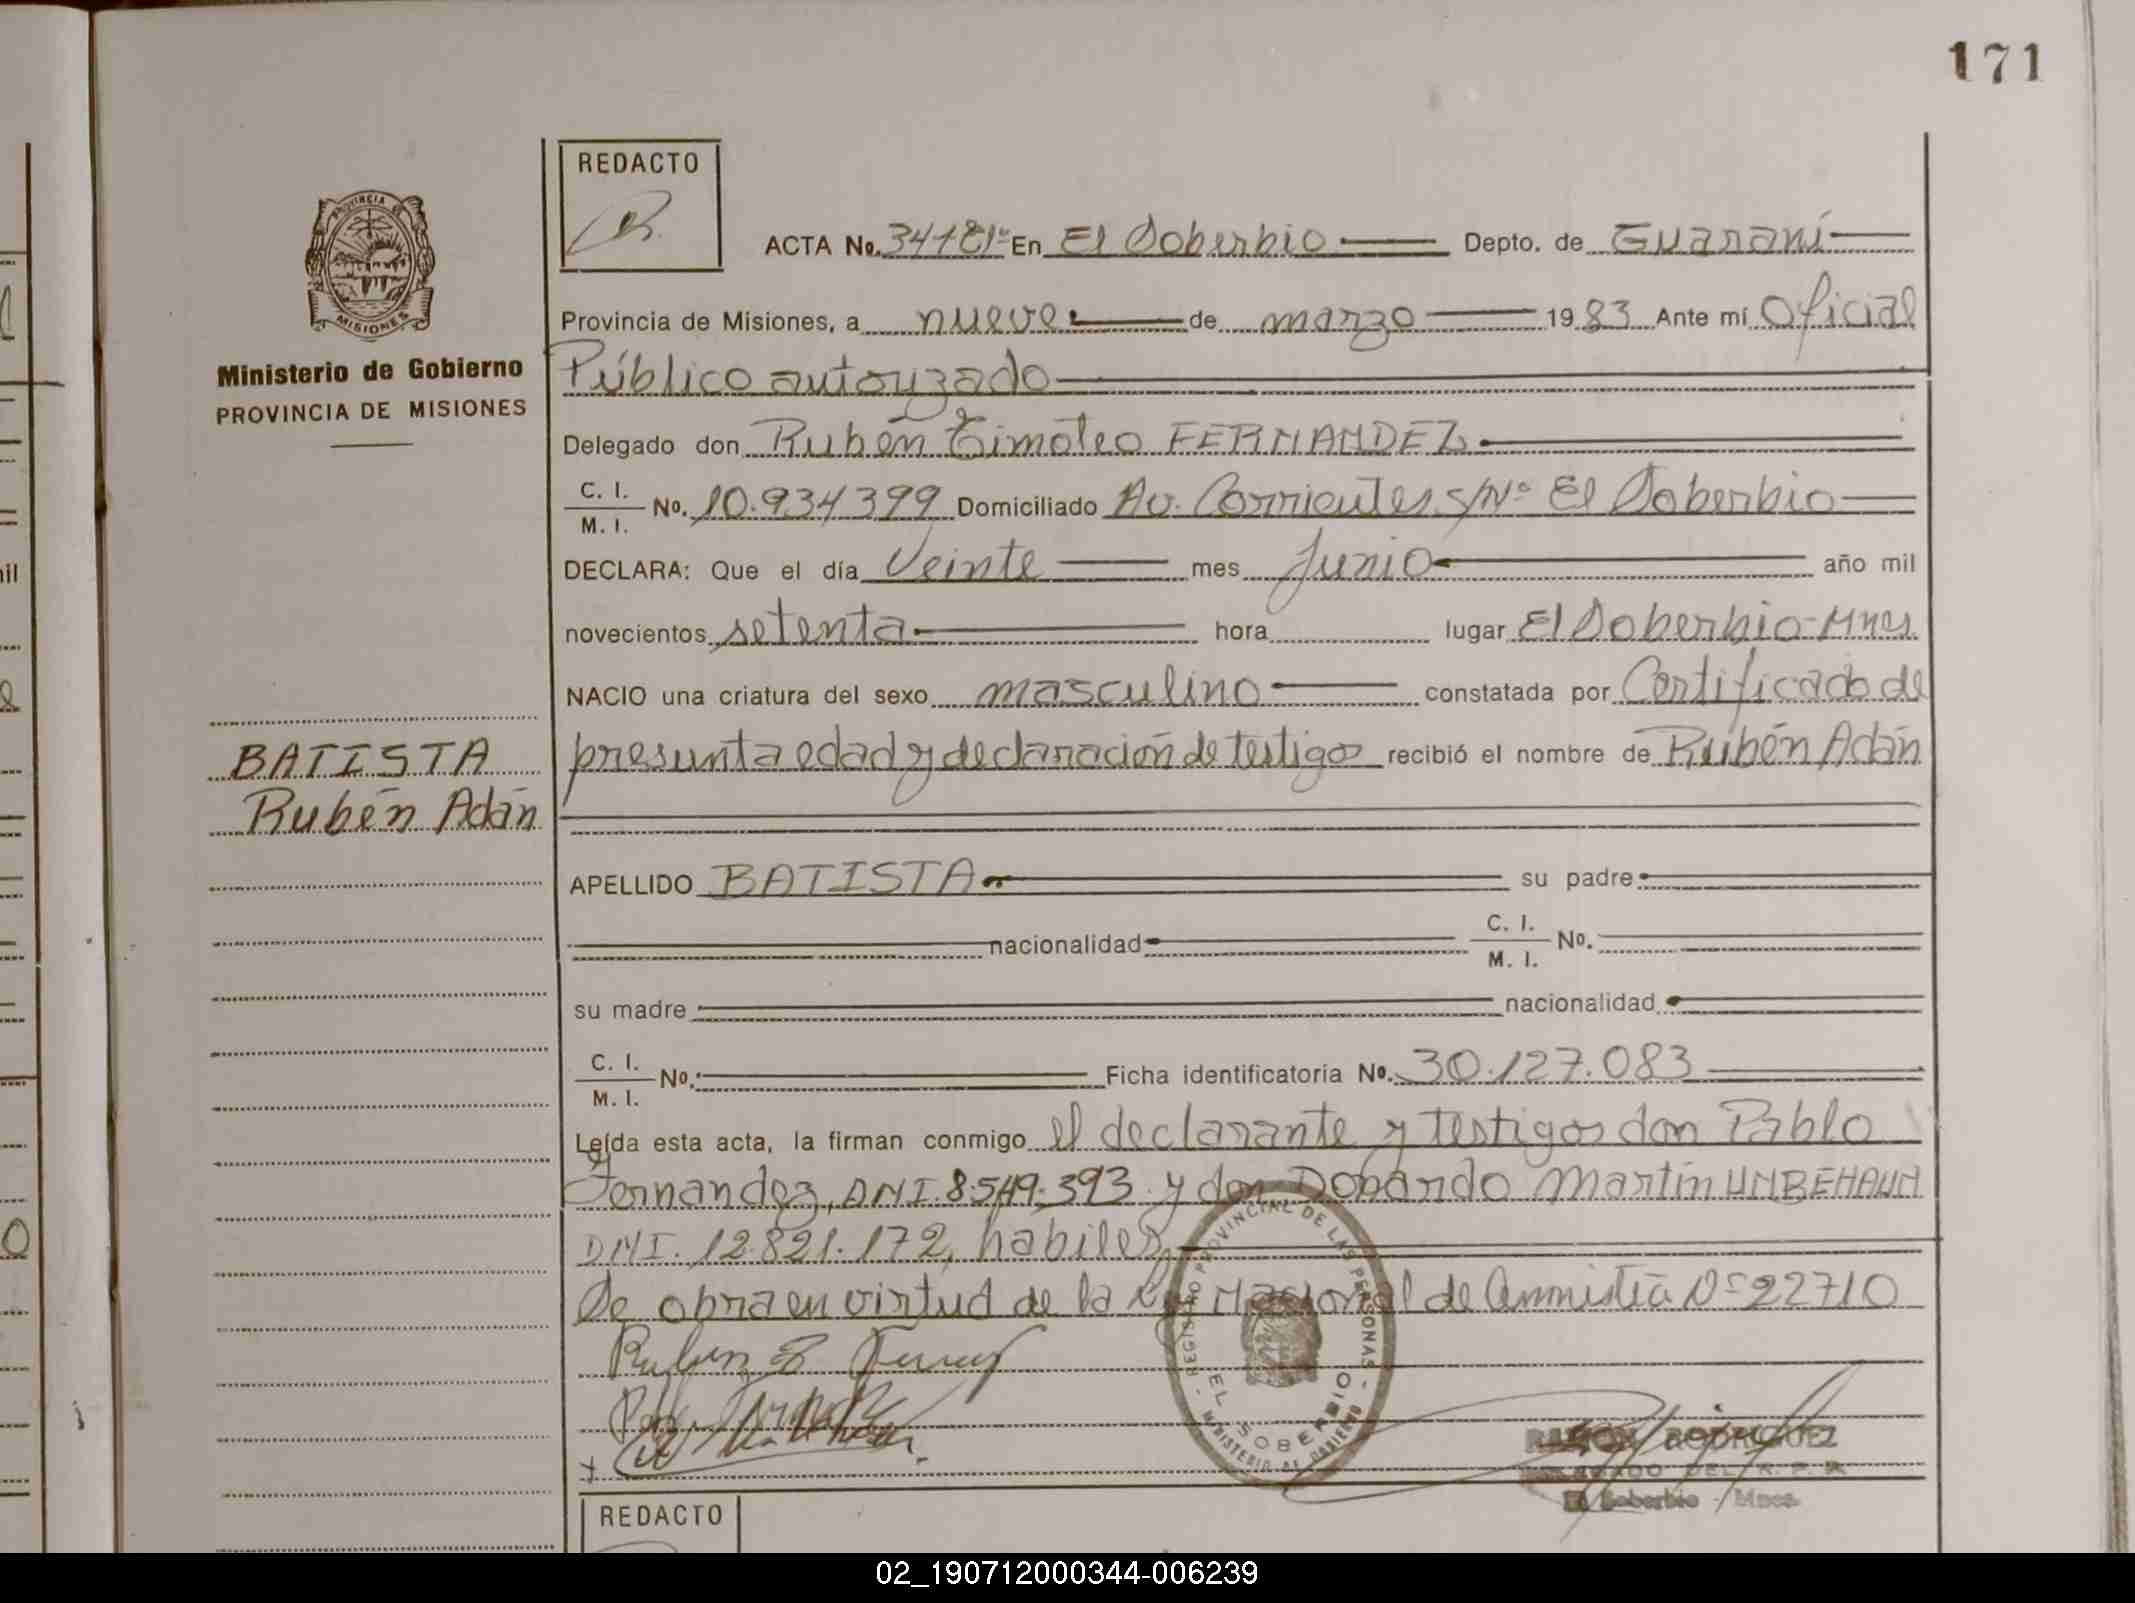 171
REDACTO
ACTA No. 34181 En El Soberbio Depto. de Guaraní
Provincia de Misiones, a nueve de marzo 1983 Ante mí Oficial
Ministerio de Gobierno
PROVINCIA DE MISIONES
Público autorizado
Delegado don Rubén Timoteo FERNANDEZ
C. I.
M. I.
No. 10.934399 Domiciliado Av. Corrientes S/Nº El Soberbio
DECLARA: Que el día Veinte mes Junio año mil
novecientos setenta hora lugar El Soberbio-Mnes
NACIO una criatura del sexo masculino constatada por Certificado de
presunta edad y declaración de testigos recibió el nombre de Rubén Adán
BATISTA
Rubén Adán
APELLIDO BATISTA su padre
nacionalidad C. I.
M. I. No.
su madre nacionalidad
C. I.
M. I. No. Ficha identificatoria No. 30.127.083
Leída esta acta, la firman conmigo el declarante y testigos don Pablo
Fernandez, DNI. 8.549.393 y don Dobardo Martín UNBEHAUN
DNI. 12.821.172, habiles
Se obra en virtud de la Ley Nacional de Amnistía Nº 22710
REGISTRO PROVINCIAL DE LAS PERSONAS
EL SOBERBIO
MINISTERIO DE GOBIERNO
PROVINCIA DE
MISIONES
RAMON RODRIGUEZ
DELEGADO DEL R. P. P.
El Soberbio - Mnes.
REDACTO
02_190712000344-006239